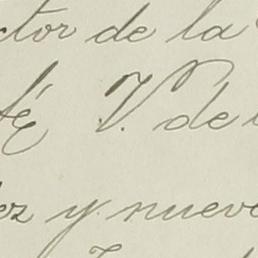 ctor de la
fé V. de
ez y nueve